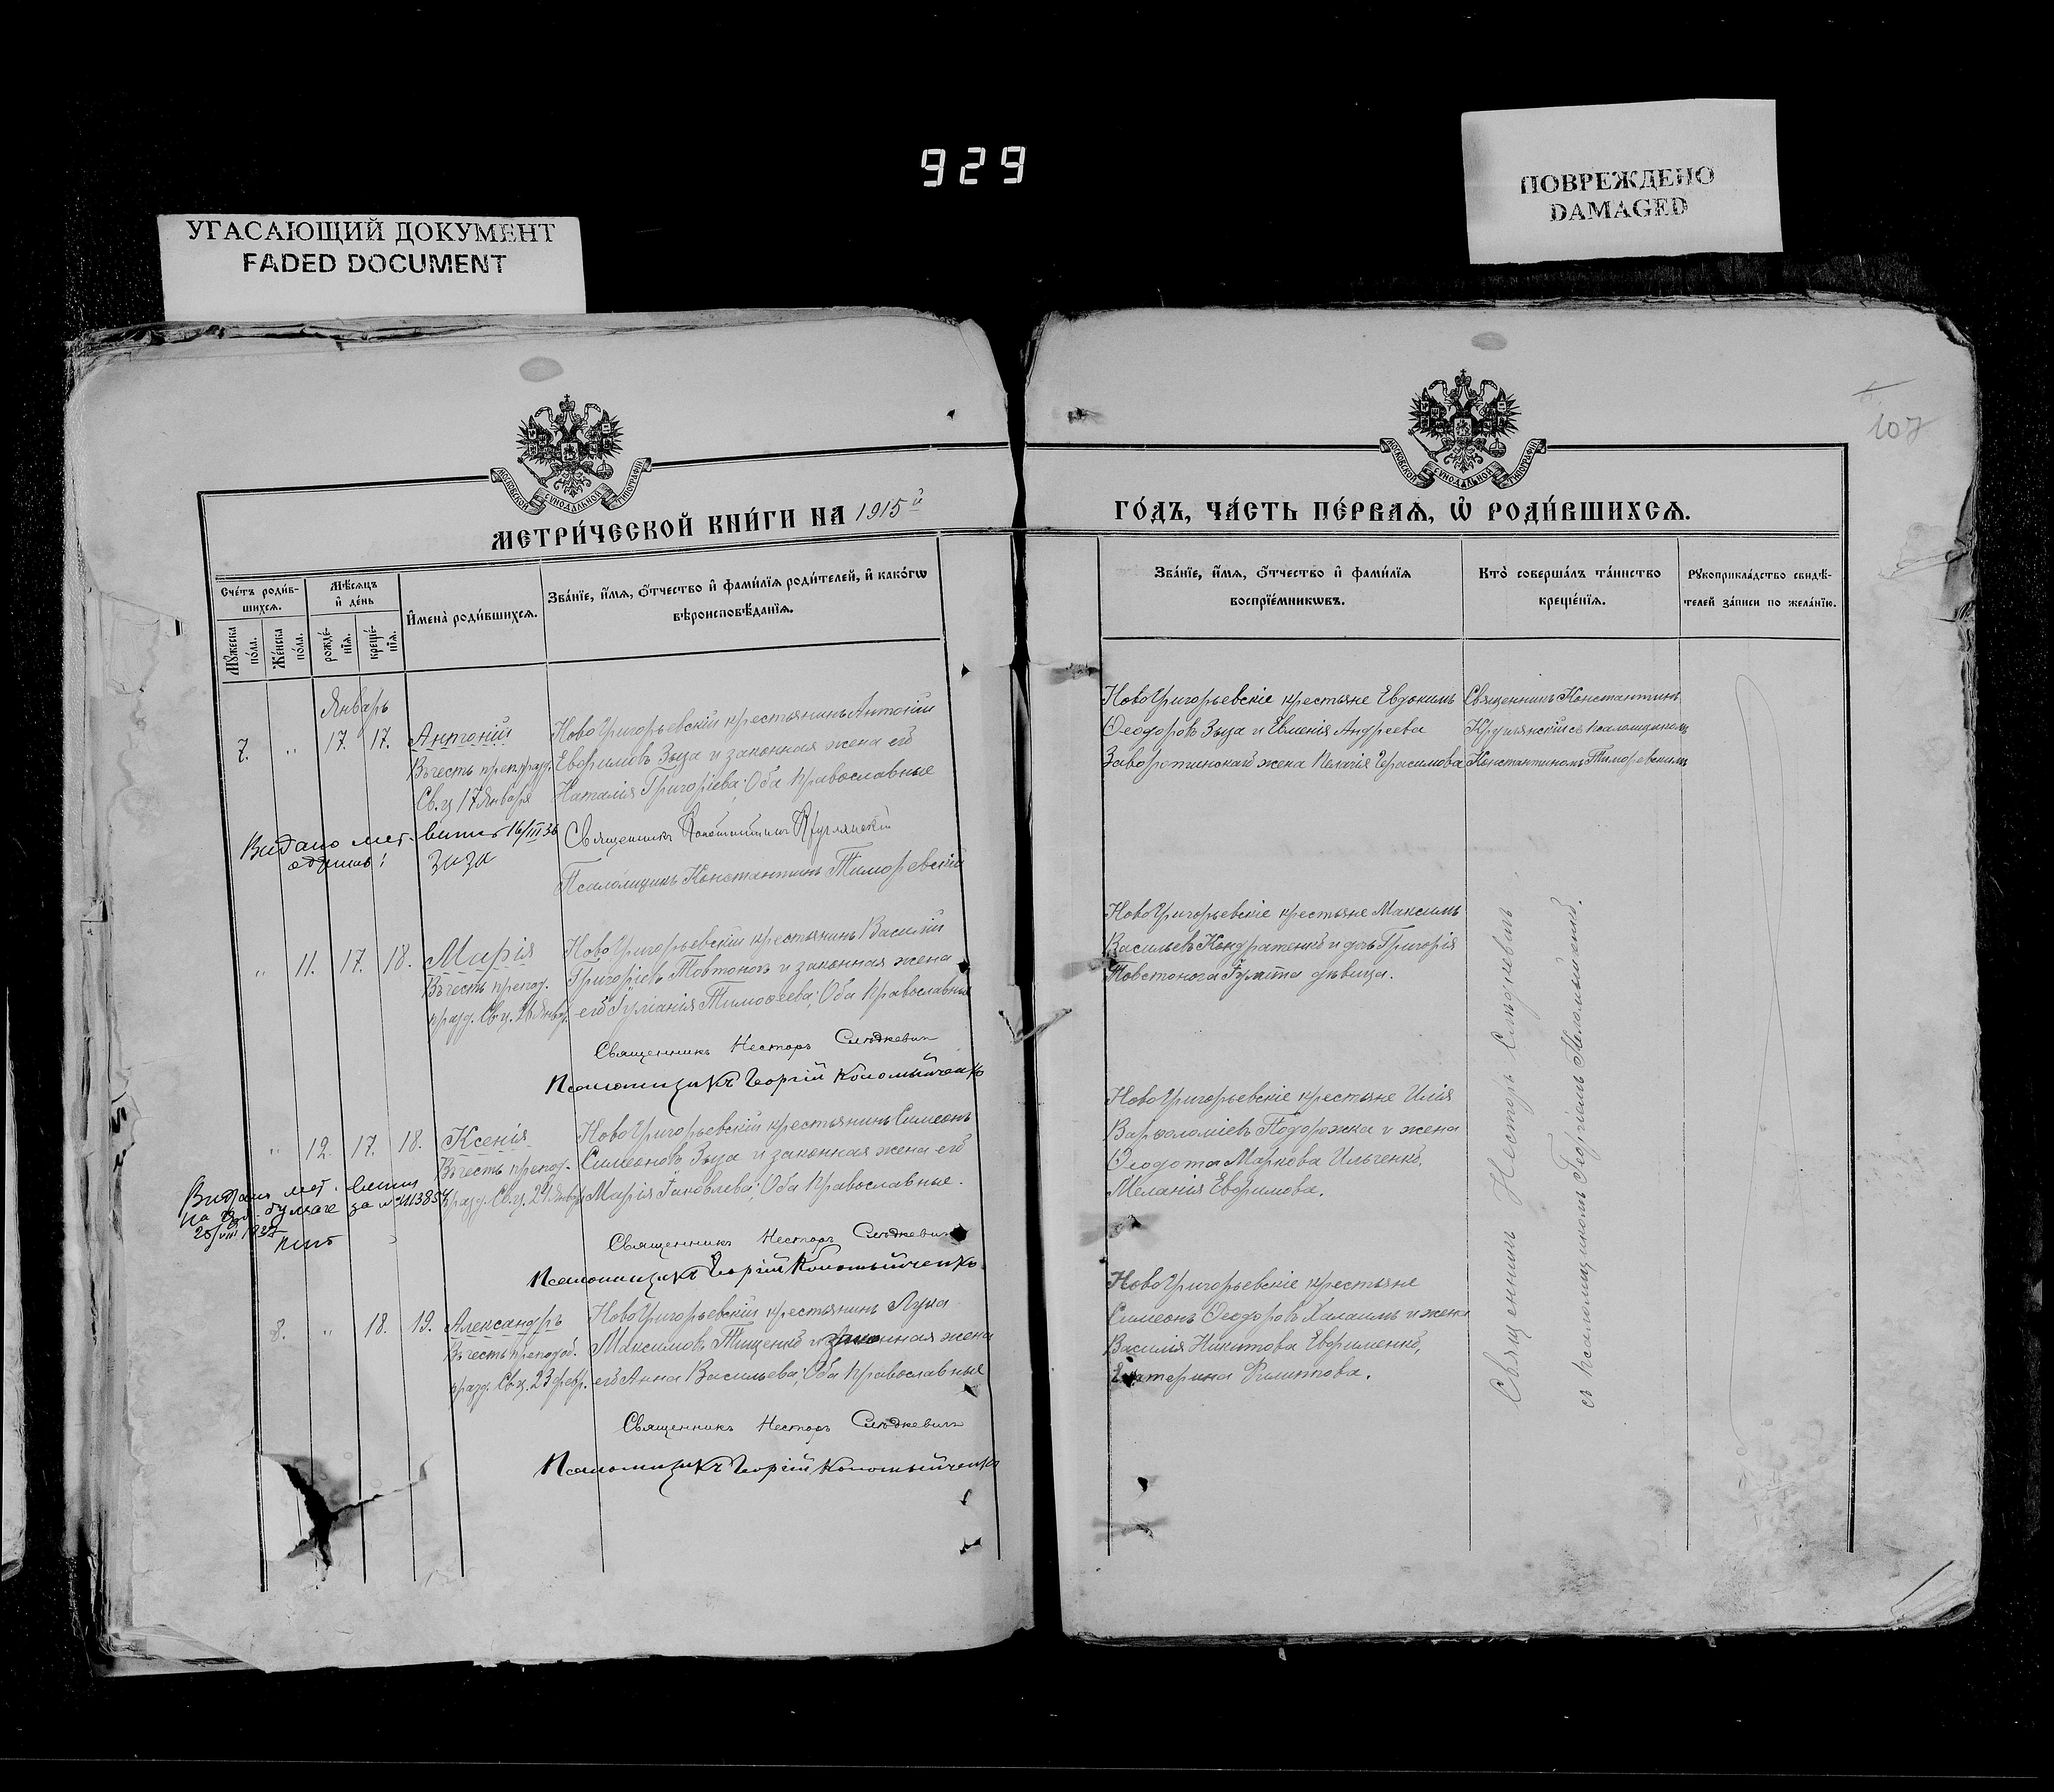 929
УГАСАЮЩИЙ ДОКУМЕНТ
FADED DOCUMENT
ПОВРЕЖДЕНО
DAMAGED
107
МОСКОВСКОЙ СУНОДАЛЬНОЙ ТИПОГРАФІИ
МОСКОВСКОЙ СУНОДАЛЬНОЙ ТИПОГРАФІИ
МЕТРИ́ЧЕСКОЙ КНИ́ГИ НА 1915й
ГО́ДЪ, ЧА́СТЬ ПЕ́РВАѦ, Ѡ҆ РОДИ́ВШИХСѦ.
Сче́тъ роди́в-
шихсѧ.
Мꙋ́жеска по́ла.
Же́нска по́ла.
Мѣ́сѧцъ
и҆ де́нь
рожде́-
нїѧ.
креще́-
нїѧ.
И҆мена̀ роди́вшихсѧ.
Зва́нїе, и҆́мѧ, ѻ҆́тчество и҆ фами́лїѧ роди́телей, и҆ како́гѡ
вѣроисповѣ́данїѧ.
Зва́нїе, и҆́мѧ, ѻ҆́тчество и҆ фами́лїѧ
воспрїе́мникѡвъ.
Кто̀ соверша́лъ та́инство
креще́нїѧ.
Рꙋкоприкла́дство свидѣ́-
телей за́писи по жела́нїю.
Январь
7. „ 17. 17. Антоній
Въ честь преп. празд.
Св. ц 17 Января
НовоГригорьевскій крестьянинъ Антоній
Евфимовъ Зыза и законная жена его
Наталія Григоріева; Оба православные
Священникъ Константинъ Круглянскій
Псаломщикъ Константинъ Тиморевскій
Видано мет. випис 16/III 36
Зиза
НовоГригорьевскіе крестьяне Евдокимъ
Ѳеодоровъ Зыза и Евменія Андреева
жена Пелагія Герасимова
Священникъ Константинъ
Круглянскій съ псаломщикомъ
Константиномъ Тиморевскимъ
„ 11. 17. 18. Марія
Въ честь препод.
празд. Св. ц. 26 Январ.
НовоГригорьевскій крестьянинъ Василій
Григоріевъ Товтоногъ и законная жена
его Іуліанія Тимоѳеева; Оба православные
Священникъ Несторъ Слѣдкевич
Псаломщикъ Георгій Коломыйченко
НовоГригорьевскіе крестьяне Максимъ
Васильевъ Кондратенко и дочь Григорія
Товстонога Іулитта дѣвица.
„ 12. 17. 18. Ксенія
Въ честь препод.
празд. Св. ц. 24 Январ
НовоГригорьевскій крестьянинъ Симеонъ
Симеоновъ Зыза и законная жена его
Марія Іаковлева; Оба православные.
Священникъ Несторъ Слѣдкевич
Псаломщикъ Георгій Коломыйченко
Видано мет. випис
на бумаге за №
НовоГригорьевскіе крестьяне Илія
Варѳоломіевъ Подорожка и жена
Ѳеодота Маркова Ильченко,
Меланія Евфимова.
8. „ 18. 19. Александръ
Въ честь преподоб.
празд. Св. ц. 23 февр.
НовоГригорьевскій крестьянинъ Лука
Максимовъ Тищенко и законная жена
его Анна Васильева; Оба православные
Священникъ Несторъ Слѣдкевич
Псаломщикъ Георгій Коломыйченко
НовоГригорьевскіе крестьяне
Симеонъ Ѳеодоровъ Халаимъ и жена
Василія Никитова Евфименко,
Екатерина Филиппова.
Священникъ Несторъ Слѣдкевичъ
съ псаломщикомъ Георгіемъ